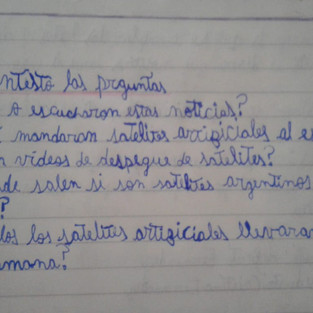 ntesto las prguntas
o escucharon estas noticias?
mandaran satelites arrigiciales al e
n videos de despegue de satelites?
de salen si son satelites argentinos
?
los los satelites artigiciales llevaran
emana?